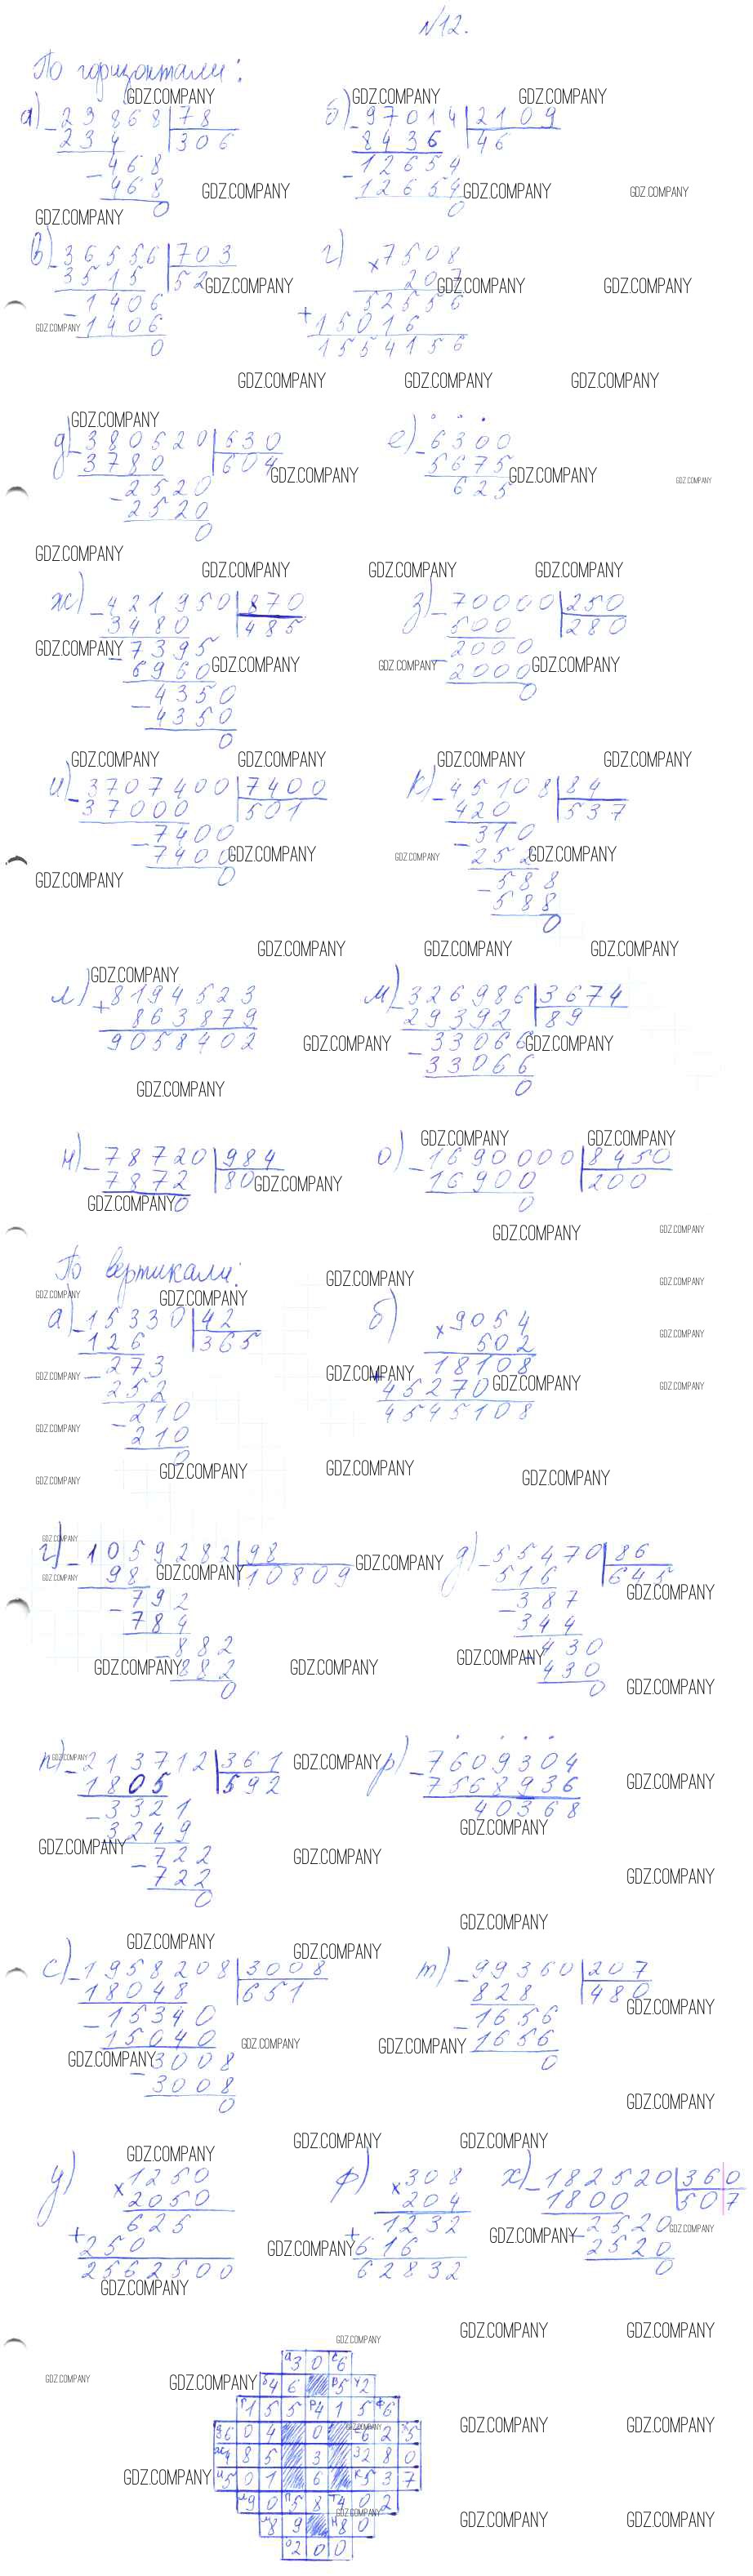 №12.
По горизонтали:
а) 23868 | 78
234 | 306
468
468
0
б) 97014 | 2109
8436 | 46
12654
12654
0
в) 36556 | 703
3515 | 52
1406
1406
0
г) × 7508
207
52556
+ 15016
1554156
д) 380520 | 630
3780 | 604
2520
2520
0
е) 6300
5675
625
ж) 421950 | 870
3480 | 485
7395
6960
4350
4350
0
з) 70000 | 250
500 | 280
2000
2000
0
и) 3707400 | 7400
37000 | 501
7400
7400
0
к) 45108 | 84
420 | 537
310
252
588
588
0
л) + 8194523
863879
9058402
м) 326986 | 3674
29392 | 89
33066
33066
0
н) 78720 | 984
7872 | 80
0
о) 1690000 | 8450
16900 | 200
0
По вертикали:
а) 15330 | 42
126 | 365
273
252
210
210
0
б) × 9054
502
18108
+ 45270
4545108
г) 1059282 | 98
98 | 10809
792
784
882
882
0
д) 55470 | 86
516 | 645
387
344
430
430
0
п) 213712 | 361
1805 | 592
3321
3249
722
722
0
р) 7609304
7568936
40368
с) 1958208 | 3008
18048 | 651
15340
15040
3008
3008
0
т) 99360 | 207
828 | 480
1656
1656
0
у) × 1250
2050
625
+ 250
2562500
ф) × 308
204
1232
+ 616
62832
х) 182520 | 360
1800 | 507
2520
2520
0
а3 0 с6
б4 6 в5 у2
г1 5 5 р4 1 5 ф6
д6 0 4 0 е6 2 х5
ж4 8 5 3 з2 8 0
и5 0 1 6 к5 3 7
л9 0 п5 8 т4 0 2
м8 9 н8 0
о2 0 0
GDZ.COMPANY